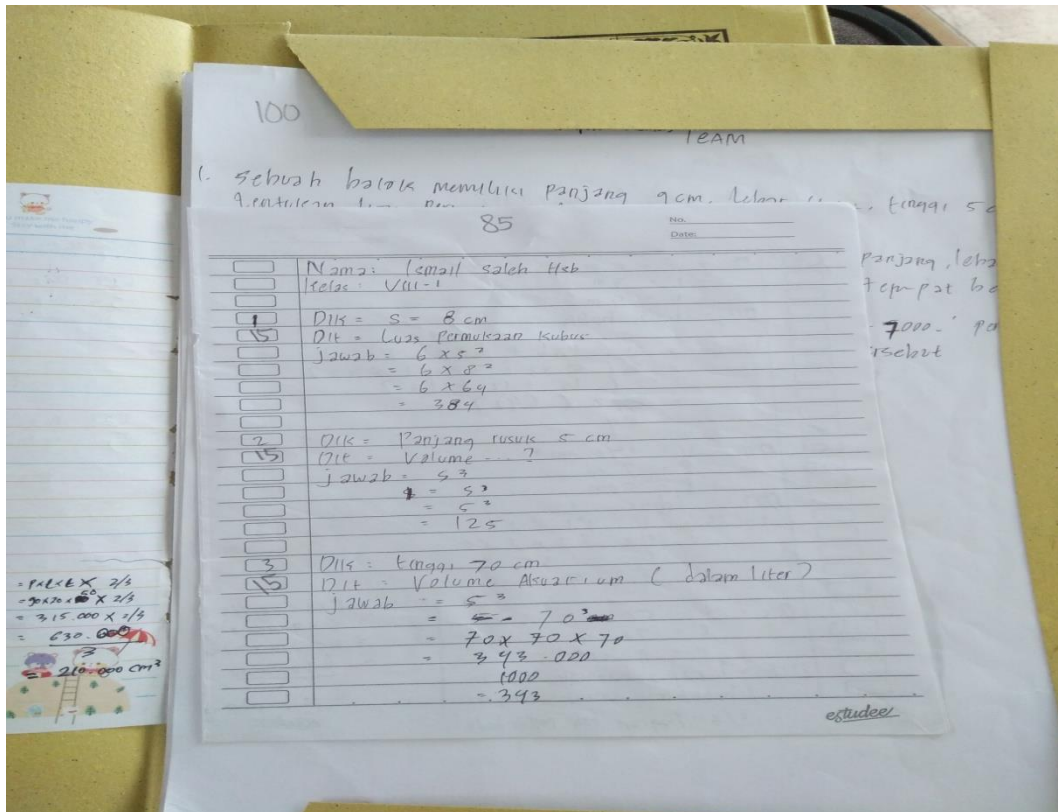 100
TEAM
1. Sebuah balok memiliki panjang 9 cm, lebar tinggi 5 c
panjang, leba
tempat be
7000.- pe
rsebut
85
No.
Date:
Nama: Ismail saleh Hsb
Kelas: VIII-1
1 Dik = s = 8 cm
15 Dit = Luas Permukaan Kubus
jawab = 6 x s²
= 6 x 8²
= 6 x 64
= 384
2 Dik = Panjang rusuk 5 cm
15 Dit = Volume ...?
jawab = s³
= s³
= 5³
= 125
3 Dik = tinggi 70 cm
15 Dit = Volume Akuarium (dalam liter)
jawab = s³
= 70³
= 70 x 70 x 70
= 343.000
1000
= 343
estudee
= PxLxt x 2/3
= 90x70x50 x 2/3
= 315.000 x 2/3
= 630.000
3
= 210.000 cm³